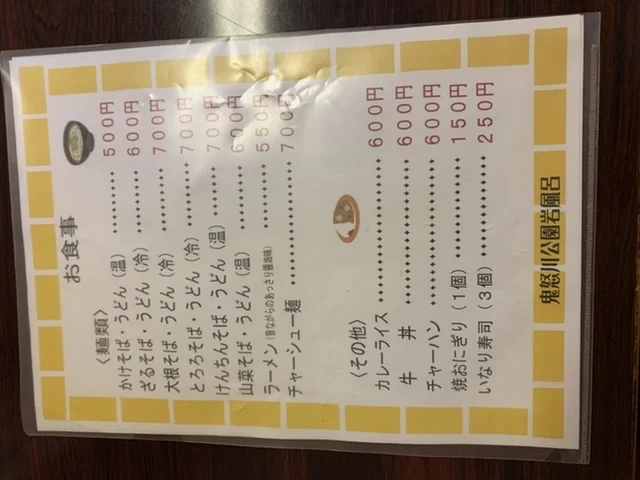 お食事
〈麺類〉
かけそば・うどん（温） ‥‥‥‥ 500円
ざるそば・うどん（冷） ‥‥‥‥ 600円
大根そば・うどん（冷） ‥‥‥‥ 700円
とろろそば・うどん（冷） ‥‥‥‥ 700円
けんちんそば・うどん（温） ‥‥‥‥ 700円
山菜そば・うどん（温） ‥‥‥‥ 600円
ラーメン（昔ながらのあっさり醤油味） ‥‥‥‥ 550円
チャーシュー麺 ‥‥‥‥‥‥‥‥ 700円
〈その他〉
カレーライス ‥‥‥‥‥‥‥‥ 600円
牛　丼 ‥‥‥‥‥‥‥‥ 600円
チャーハン ‥‥‥‥‥‥‥‥ 600円
焼おにぎり（1個） ‥‥‥‥‥‥ 150円
いなり寿司（3個） ‥‥‥‥‥‥ 250円
鬼怒川公園岩風呂